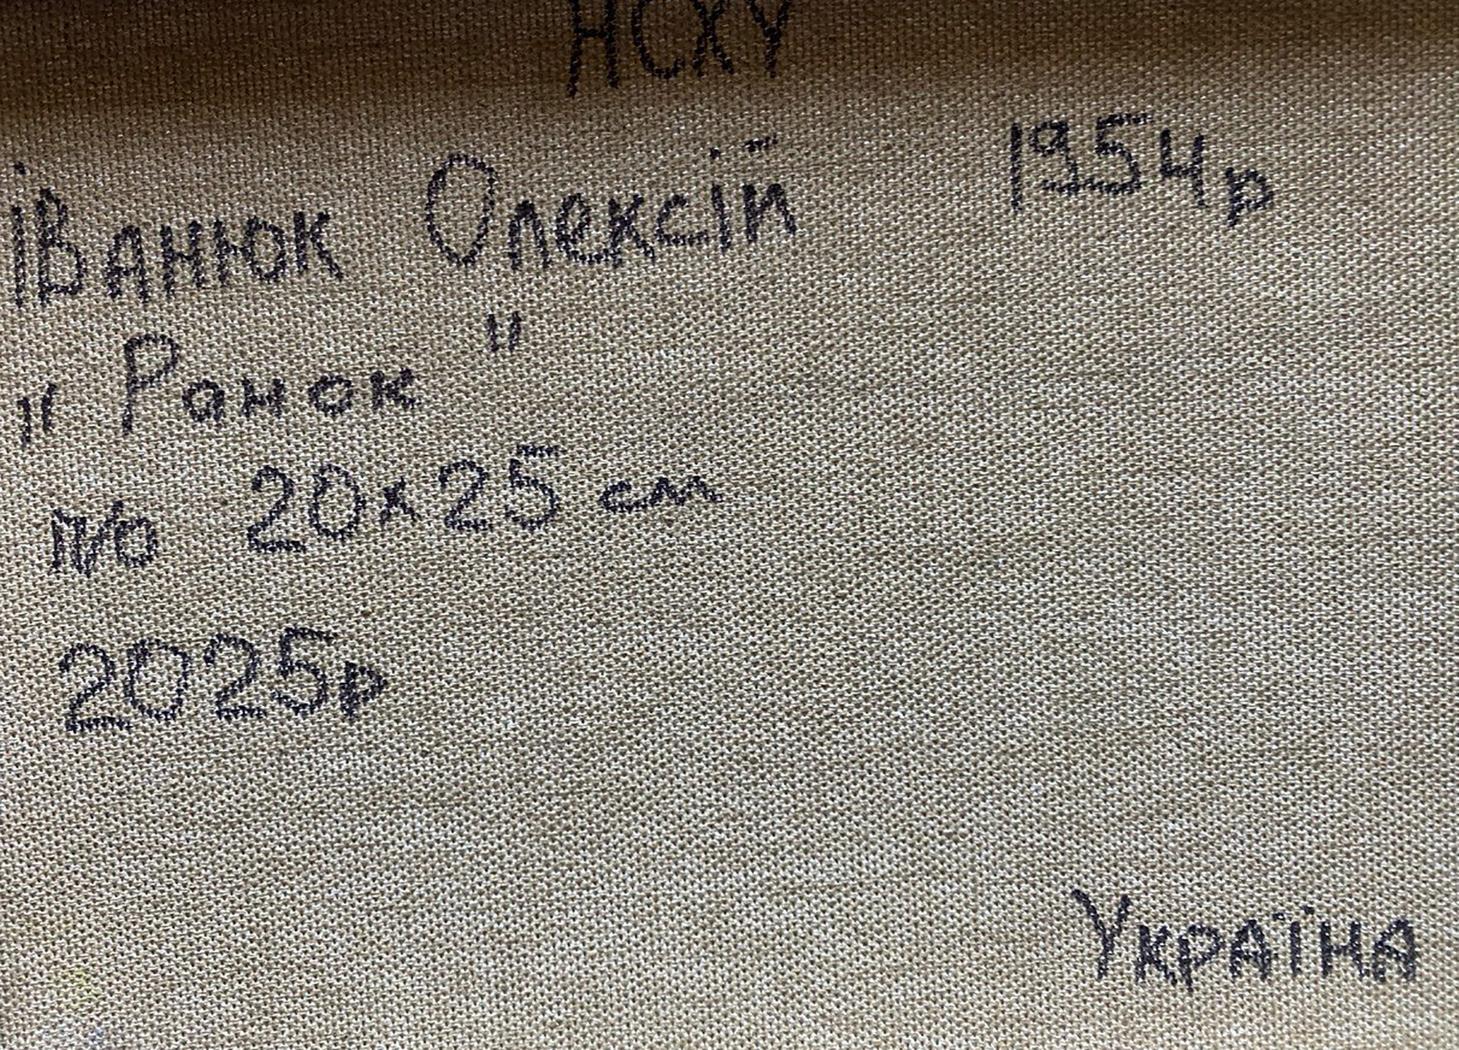 НСХУ
Іванюк Олексій 1954р
„Ранок"
п/о 20х25 см
2025р
Україна